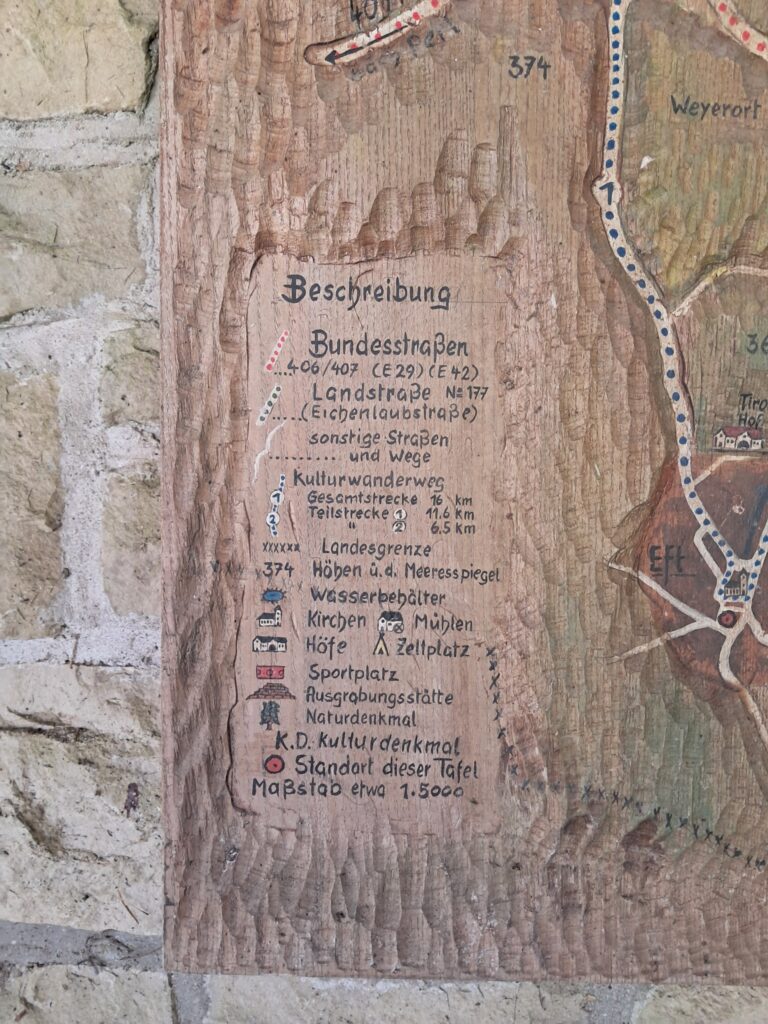 407
374
Weyerort
1
36
Tiro
Hof
Eft
Beschreibung
Bundesstraßen
....406/407 (E29) (E42)
Landstraße No 177
.....(Eichenlaubstraße)
sonstige Straßen
.......... und Wege
Kulturwanderweg
Gesamtstrecke 16 km
1 Teilstrecke 1 11.6 km
2 " 2 6.5 km
xxxxxx Landesgrenze
374 Höhen ü.d. Meeresspiegel
Wasserbehälter
Kirchen Mühlen
Höfe Zeltplatz
Sportplatz
Ausgrabungsstätte
Naturdenkmal
K.D. Kulturdenkmal
Standort dieser Tafel
Maßstab etwa 1.5000